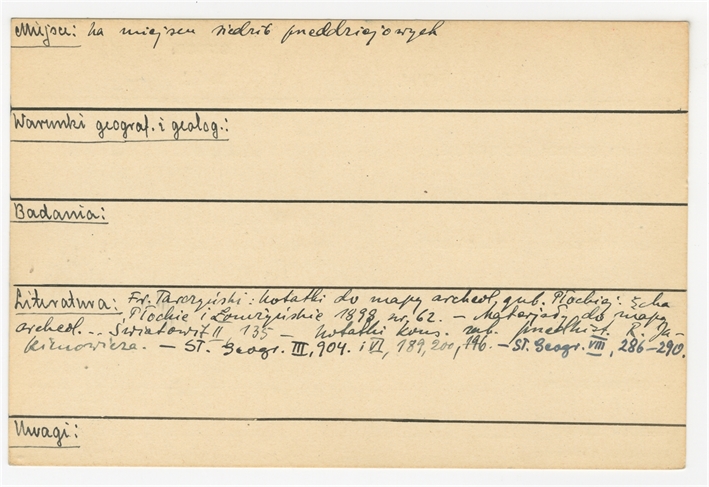 Miejsce: na miejscu siedzib przeddziejowych
Warunki geograf. i geolog.:
Badania:
Literatura: Fr. Tarczyński: Notatki do mapy archeol. gub. Płockiej: Echa
Płockie i Łomżyńskie 1898, nr. 62. – Materjały do mapy
archeol... Światowit II 135 – Notatki kons. zab. przedhist. R. Ja-
kimowicza. – Sł. Geogr. III, 904. i VI, 189, 200, 796. – Sł. Geogr. VIII, 286–290.
Uwagi: